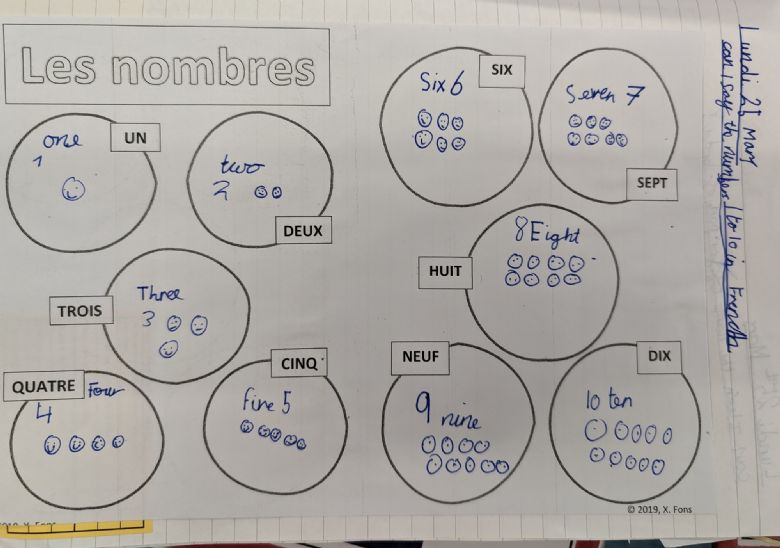 Les nombres
one
UN
1
two
2
DEUX
Three
TROIS
3
QUATRE
Four
4
CINQ
five 5
SIX
Six 6
Seven 7
SEPT
8 Eight
HUIT
NEUF
9 nine
DIX
10 ten
© 2019, X. Fons
Lundi
can I say the numbers 1 to 10 in French